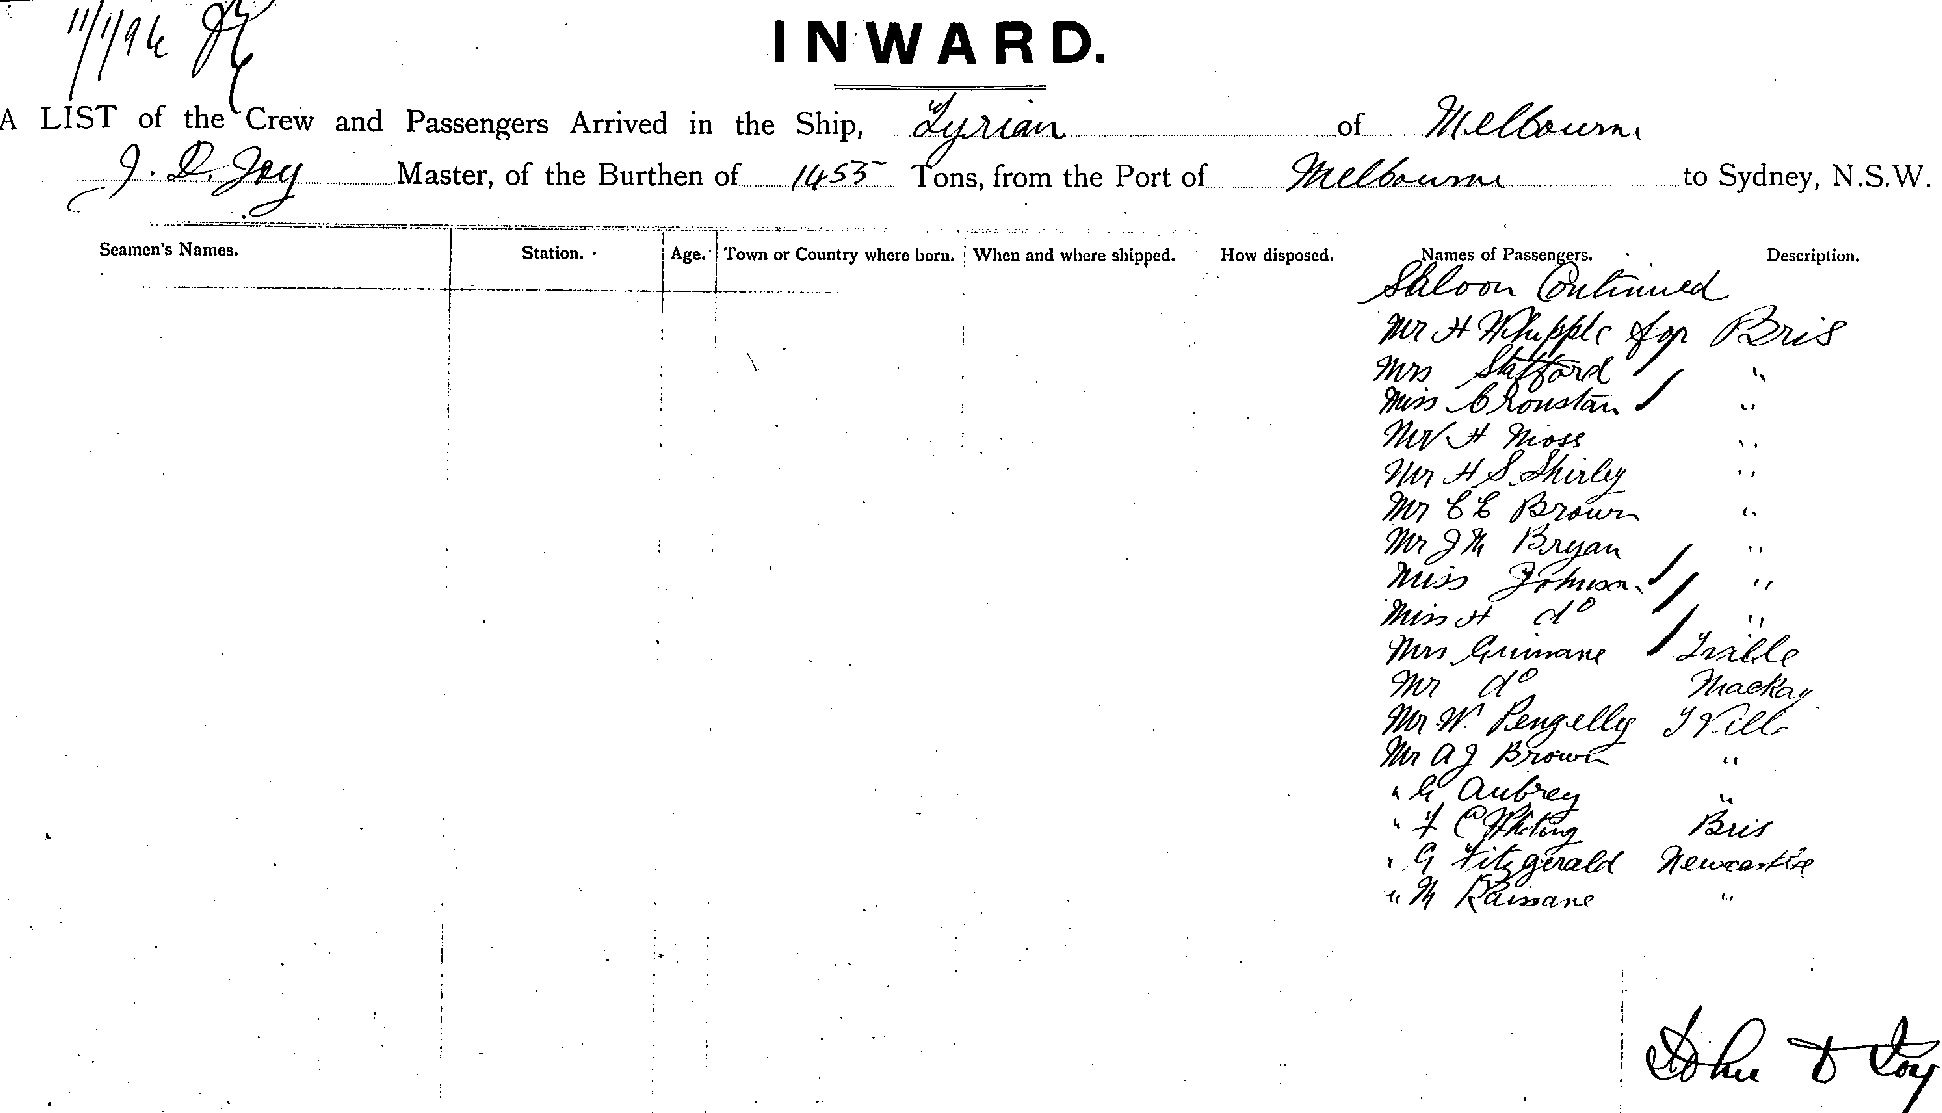 11/1/96
INWARD.
A LIST of the Crew and Passengers Arrived in the Ship, Tyrian of Melbourne
J. D. Joy Master, of the Burthen of 1455 Tons, from the Port of Melbourne to Sydney, N.S.W.
Seamen's Names. Station. Age. Town or Country where born. When and where shipped. How disposed. Names of Passengers. Description.
Saloon Continued
Mr H Whipple for Bris
Mrs Stafford "
Miss Cronstan "
Mr H Moss "
Mr H S Shirley "
Mr C C Brown "
Mr J M Bryan "
Miss Johnson "
Miss H do "
Mrs
Mr do Mackay
Mr W. Pengelly TVille
Mr A J Brown "
" G Aubrey "
" F C Whiting Bris
" G Fitzgerald Newcastle
" M "
John D Joy